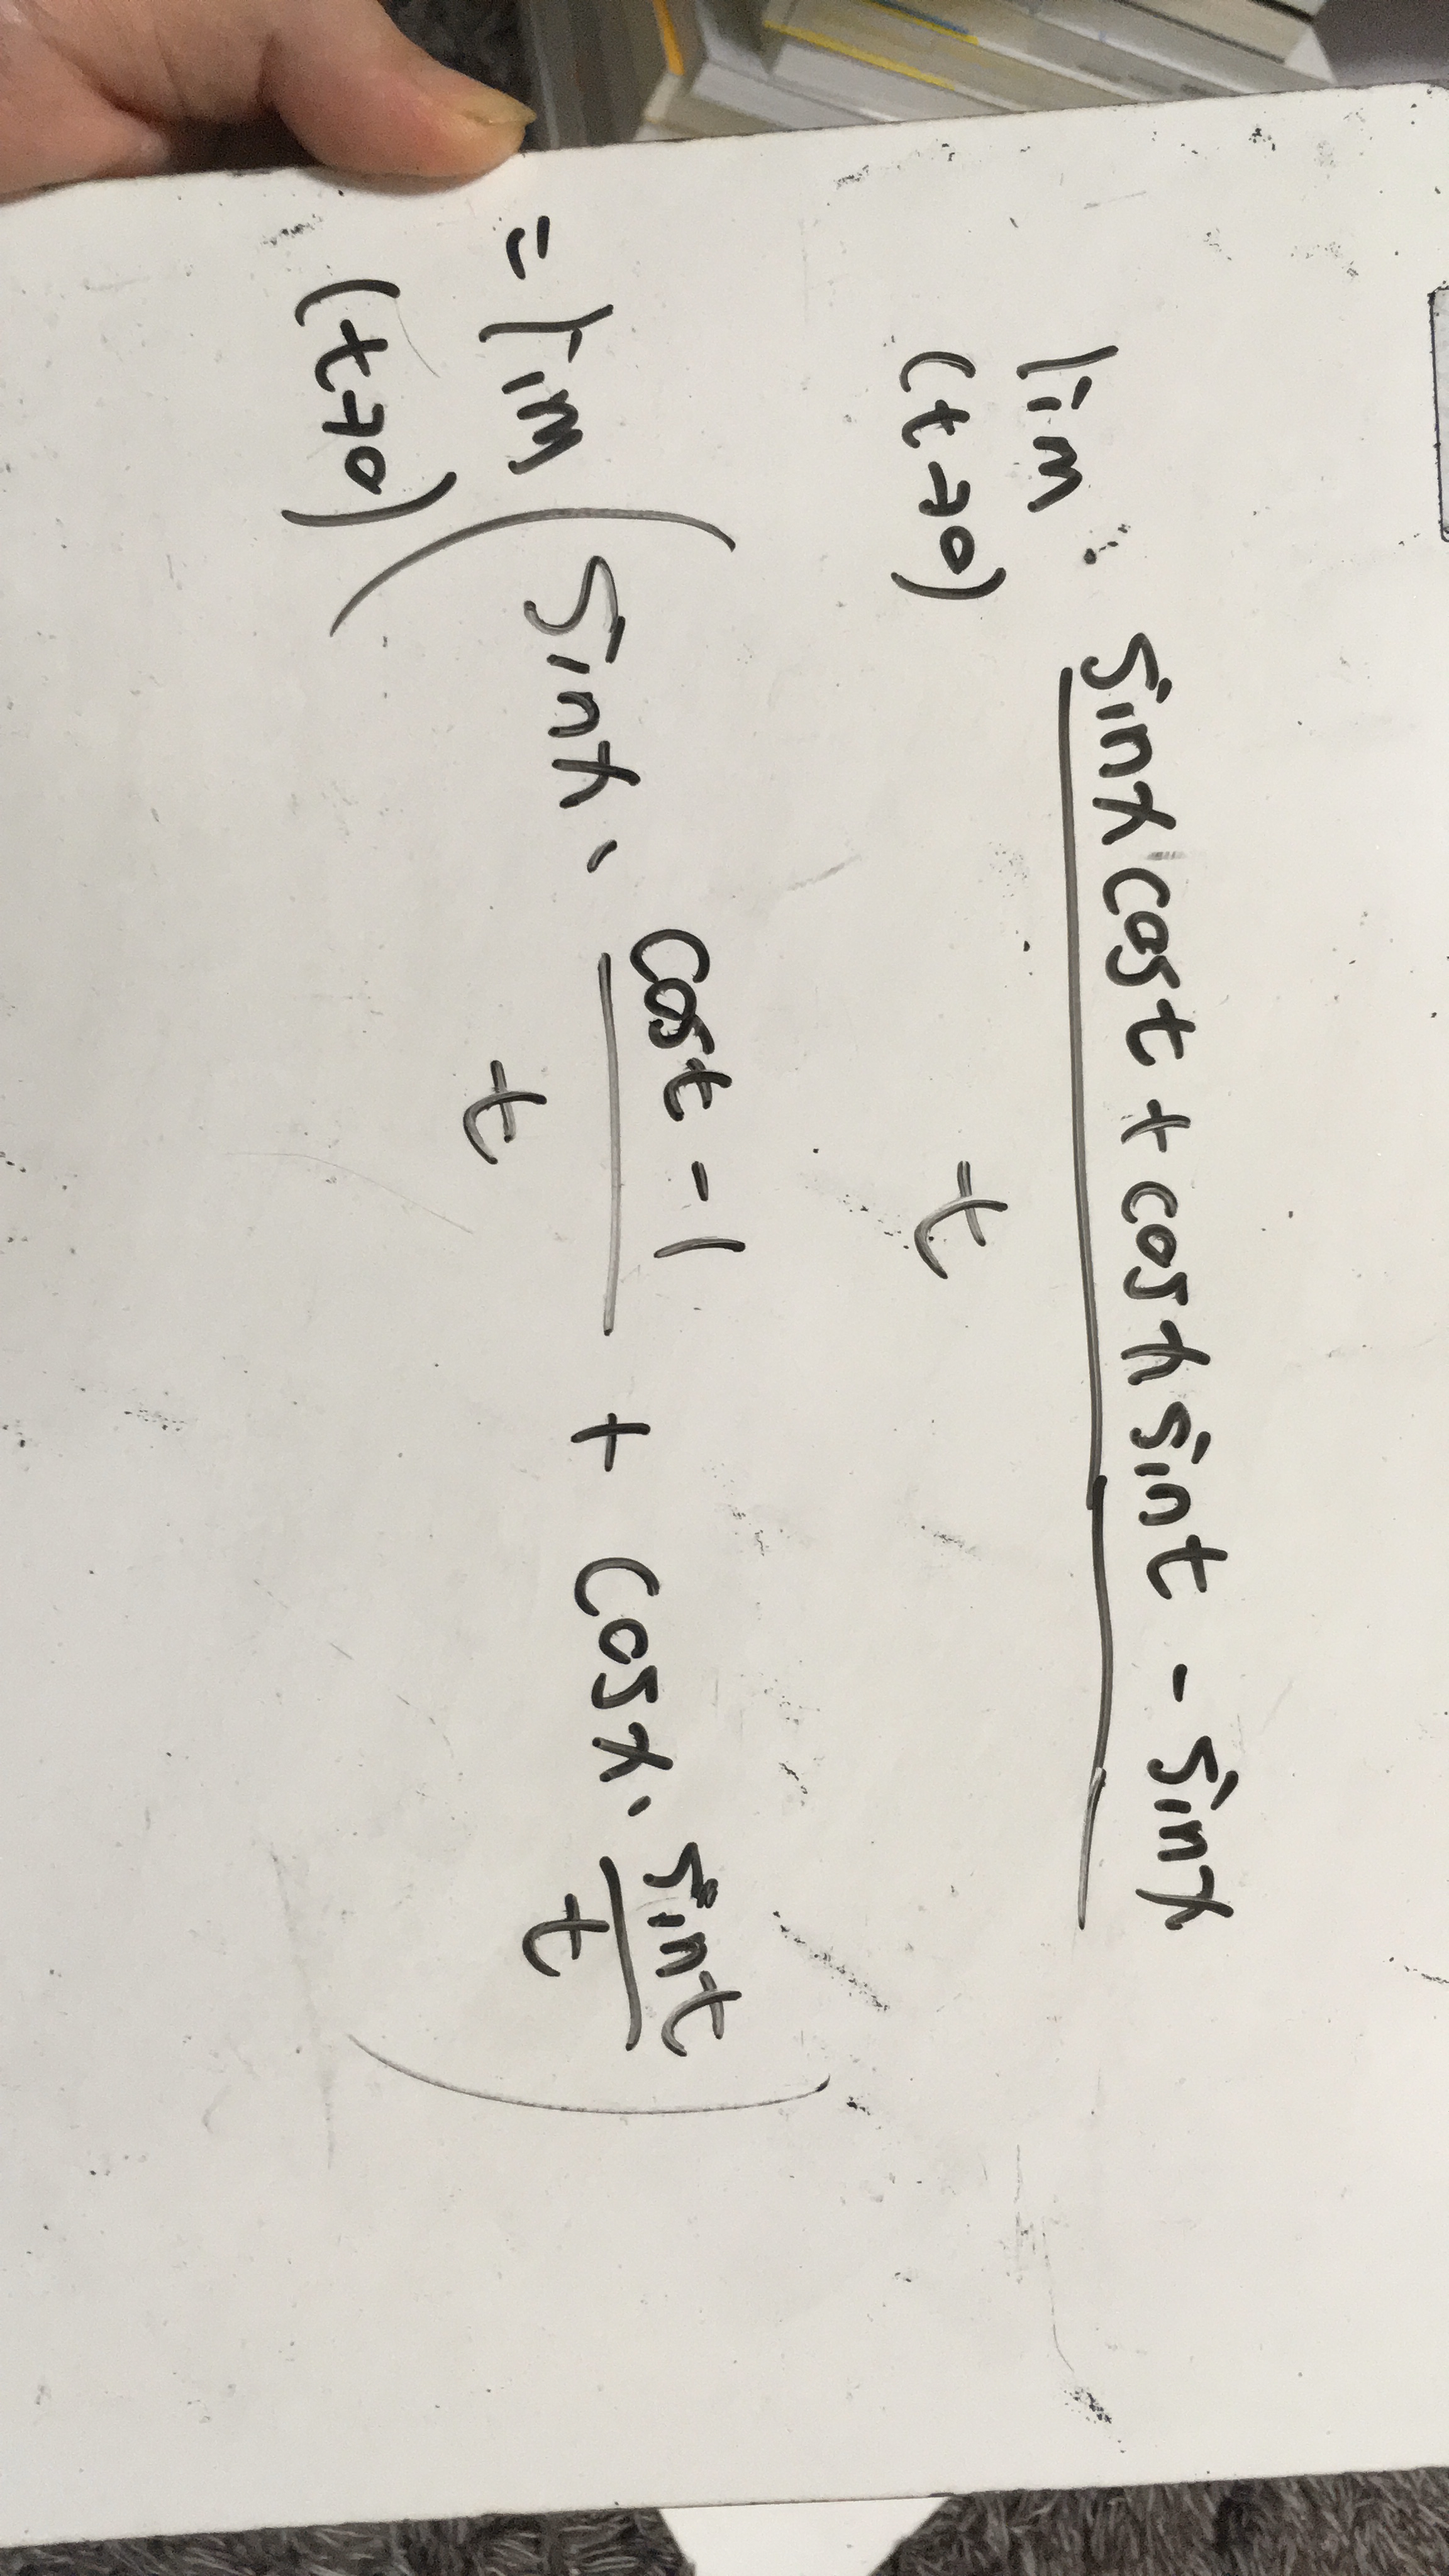 lim (t→0) (sinx cost + cosx sint - sinx) / t
= lim (t→0) ( sinx · (cost - 1) / t + cosx · sint / t )